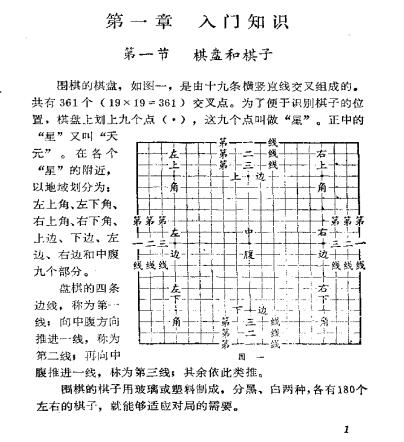 第一章 入门知识
第一节 棋盘和棋子
围棋的棋盘，如图一，是由十九条横竖直线交叉组成的。
共有361个（19×19＝361）交叉点。为了便于识别棋子的位
置，棋盘上划上九个点（·），这九个点叫做“星”。正中的
“星”又叫“天
元”。在各个
“星”的附近，
以地域划分为：
左上角、左下角、
右上角、右下角、
上边、下边、左
边、右边和中腹
九个部分。
盘棋的四条
边线，称为第一
线；向中腹方向
推进一线，称为
第二线；再向中
腹推进一线，称为第三线；其余依此类推。
第一线
第二线
第三线
左上角
上边
右上角
第一线
第二线
第三线
左边
中腹
右边
第三线
第二线
第一线
左下角
下边
右下角
第三线
第二线
第一线
图一
围棋的棋子用玻璃或塑料制成，分黑、白两种，各有180个
左右的棋子，就能够适应对局的需要。
1